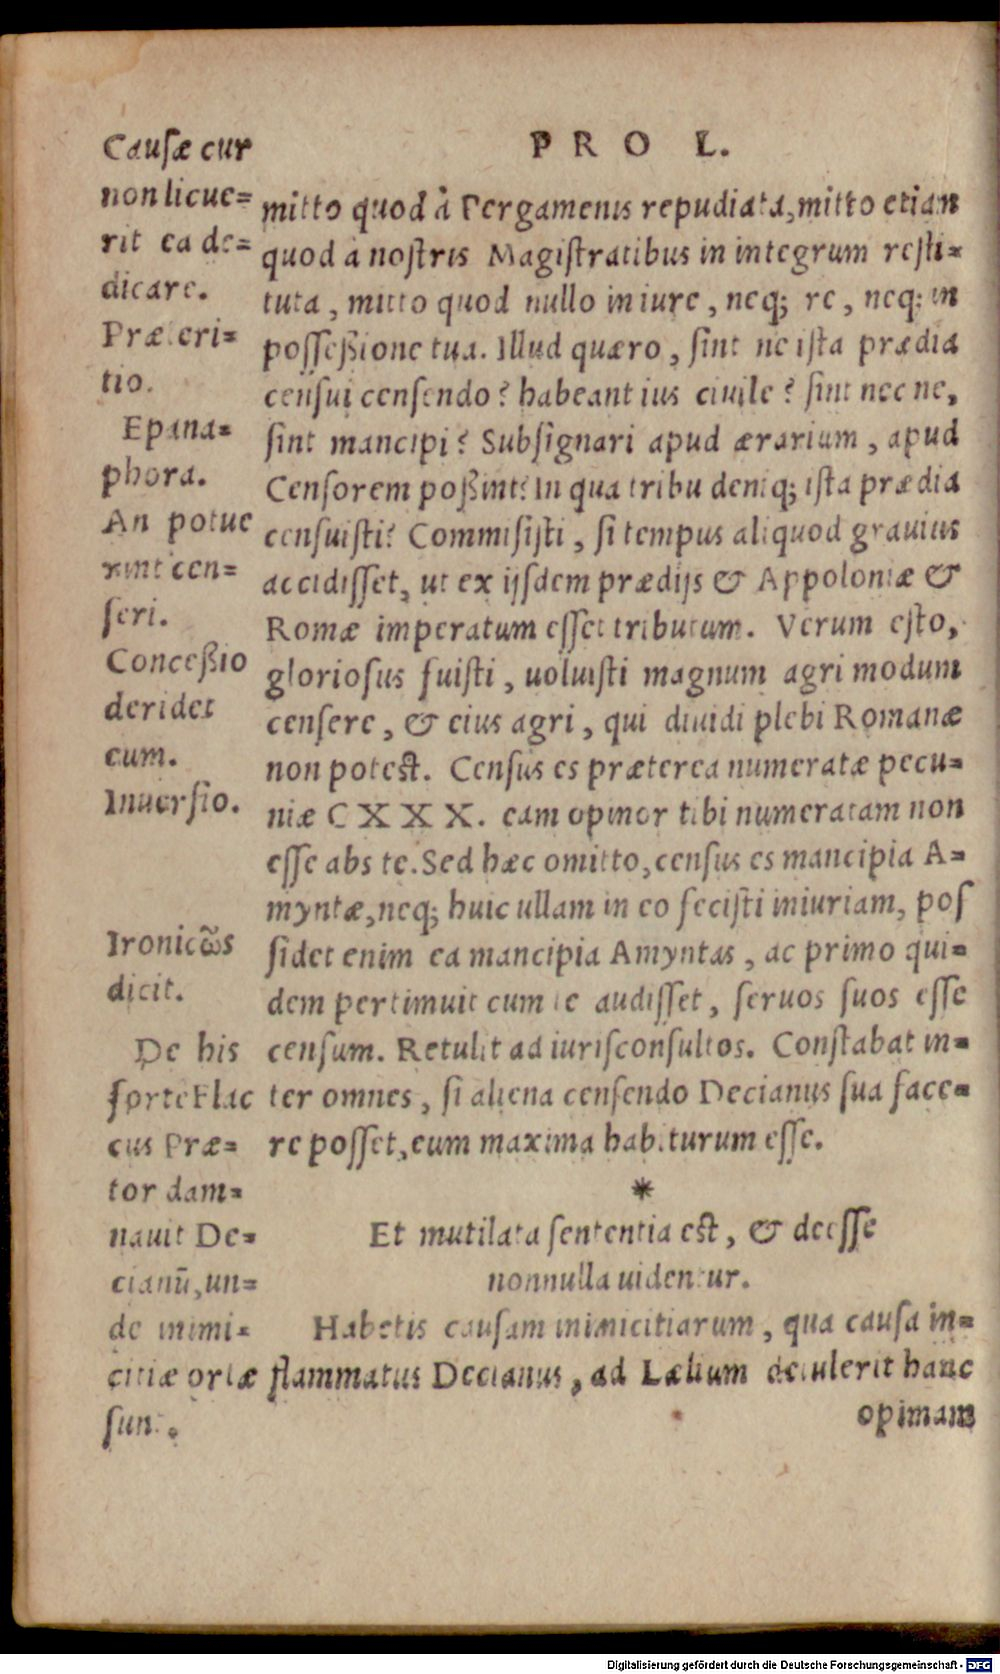 PRO L.
Causæ cur
non licue=
rit ea de=
dicare.
Præteri=
tio.
Epana=
phora.
An potue
rint cen=
seri.
Conceßio
deridet
eum.
Inuersio.
Ironicῶs
dicit.
De his
forte Flac
cus Præ=
tor dam=
nauit De=
cianū, un=
de inimi=
citiæ ortæ
sunt.
mitto quod à Pergamenis repudiata, mitto etiam
quod à nostris Magistratibus in integrum resti=
tuta, mitto quod nullo in iure, neq; re, neq; in
posseßione tua. Illud quæro, sint ne ista prædia
censui censendo? habeant ius ciuile? sint nec ne,
sint mancipi? Subsignari apud ærarium, apud
Censorem poßint? In qua tribu deniq; ista prædia
censuisti? Commisisti, si tempus aliquod grauius
accidisset, ut ex ijsdem prædijs & Appoloniæ &
Romæ imperatum esset tributum. Verum esto,
gloriosus fuisti, uoluisti magnum agri modum
censere, & eius agri, qui diuidi plebi Romanæ
non potest. Census es præterea numeratæ pecu=
niæ CXXX. eam opinor tibi numeratam non
esse abs te. Sed hæc omitto, census es mancipia A=
myntæ, neq; huic ullam in eo fecisti iniuriam, pos
sidet enim ea mancipia Amyntas, ac primo qui=
dem pertimuit cum te audisset, seruos suos esse
censum. Retulit ad iurisconsultos. Constabat in=
ter omnes, si aliena censendo Decianus sua face=
re posset, eum maxima habiturum esse.
*
Et mutilata sententia est, & deesse
nonnulla uidentur.
Habetis causam inimicitiarum, qua causa in=
flammatus Decianus, ad Lælium detulerit hanc
opimam
Digitalisierung gefördert durch die Deutsche Forschungsgemeinschaft - DFG